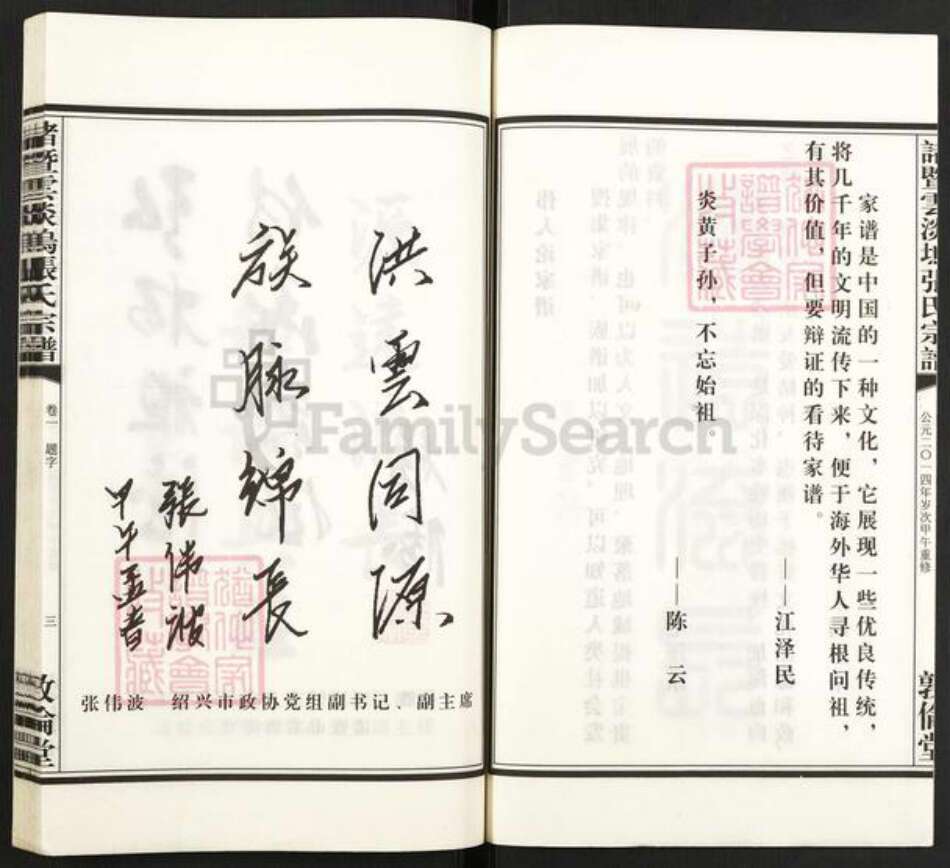 家谱是中国的一种文化，它展现一些优良传统，
将几千年的文明流传下来，便于海外华人寻根问祖，
有其价值，但要辩证的看待家谱。
——江泽民
炎黄子孙，不忘始祖。
——陈云
公元二〇一四年岁次甲午重修
敦倫堂
洪雲同源
族脉綿長
張伟波
甲午孟春
张伟波 绍兴市政协党组副书记、副主席
張氏宗譜
卷一 题字
三
敦倫堂
FamilySearch